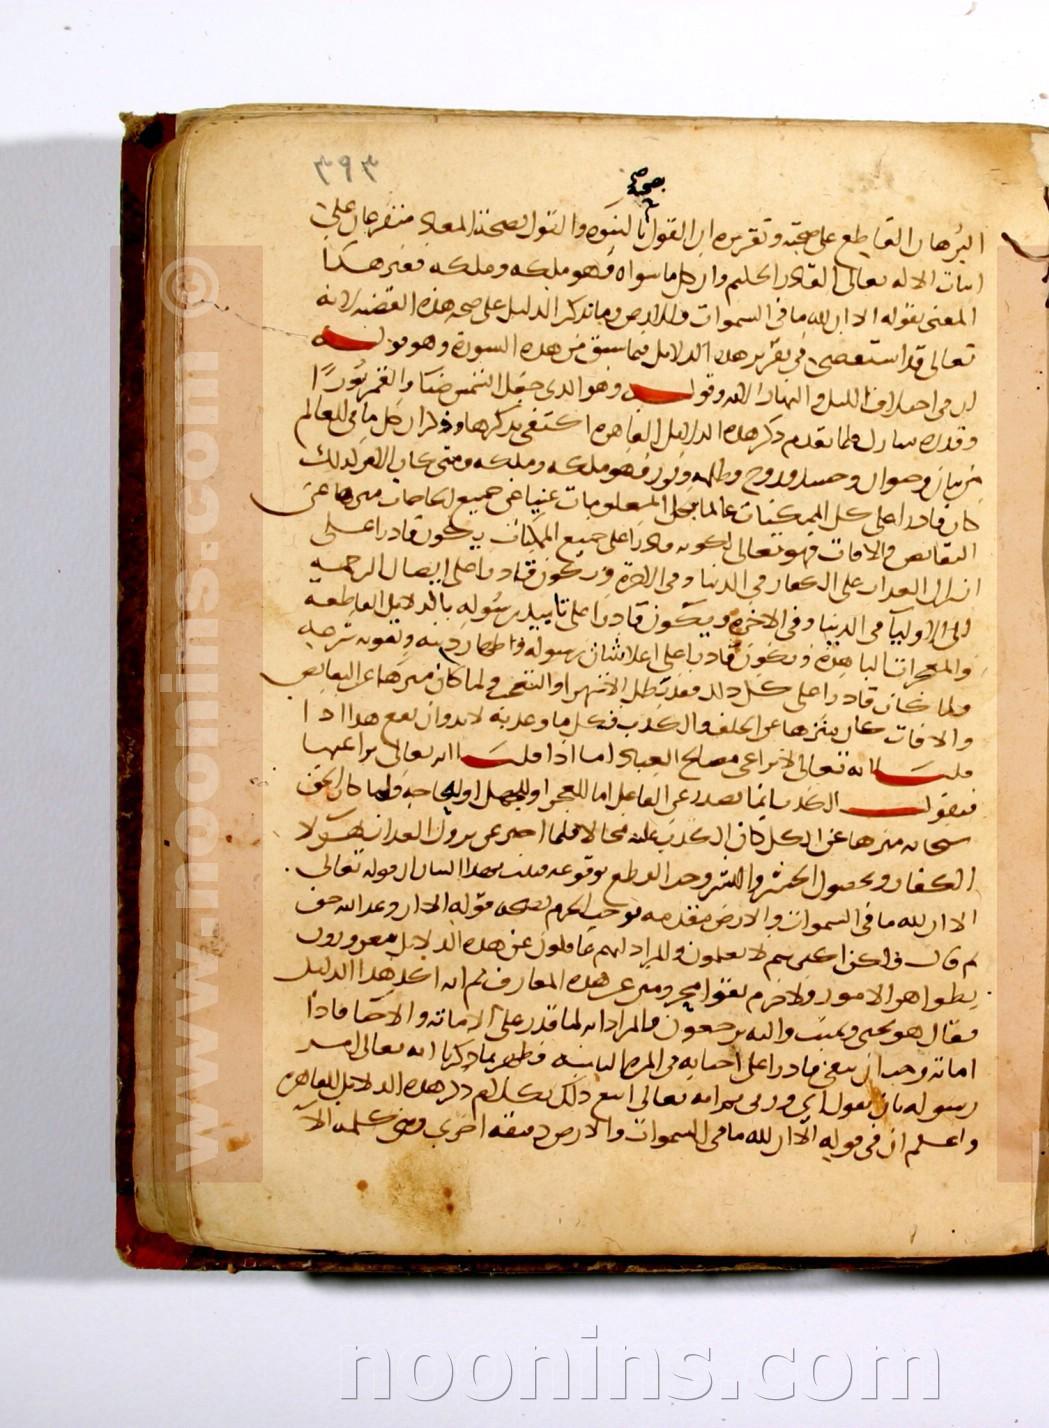 ٣٩٣
بصحة
البرهان القاطع على صحته وتقريره ان القول بالنبوة والقول بصحة المعاد متفرعان على
اثبات الاله تعالى القادر الحكيم وان كل ما سواه فهو ملكه وملكه فعبر هذا
المعنى بقوله الا ان لله ما في السموات والارض وما نذكر الدليل على صحه هذه القضيه لانه
تعالى قد استقصى في تقرير هذه الدلايل فيما سبق من هذه السورة وهو قوله
ان في اختلاف الليل والنهار الايه وقوله وهو الذي جعل الشمس ضيآ والقمر نورًا
وقدره منازل فلما تقدم ذكر هذه الدلايل القاهره اكتفى بذكرها وذكر ان كل ما في العالم
من نبات وحيوان وجسد وروح وظلمه ونور فهو ملكه وملكه ومتى كان الامر كذلك
كان قادرا على كل الممكنات عالما بكل المعلومات غنيا عن جميع الحاجات منزها عن
النقايص والافات فهو تعالى لكونه قادرا على جميع الممكنات يكون قادرا على
انزال العذاب على الكفار في الدنيا وفي الاخرة ويكون قادرا على ايصال الرحمه
الى الاوليآ في الدنيا وفي الاخرة ويكون قادرا على تاييد رسوله بالدلايل القاطعه
والمعجزات الباهرة ويكون قادرا على اعلا شان رسوله واظهار دينه وتقويه شرعه
ولما كان قادرا على كل ذلك فقد بطل الاستهزا والتعجب ولما كان منزها عن النقايص
والافات كان منزها عن الخلف والكذب فكل ما وعد به لا بد وان يقع هذا اذا
قلنا انه تعالى لا يراعي مصالح العباد اما اذا قلنا انه تعالى يراعيها
فنقول الكذب انما يصدر عن الفاعل اما للعجز او للجهل او للحاجه ولما كان الحق
سبحانه منزها عن الكل كان الكذب عليه محالا فلما اخبر عن نزول العذاب بهؤلا
الكفار وبحصول الحشر والنشر وجب القطع بوقوعه فثبت بهذا البيان ان قوله تعالى
الا ان لله ما في السموات والارض مقدمه توجب الجزم بصحه قوله الا ان وعد الله حق
ثم قال ولكن اكثرهم لا يعلمون والمراد انهم غافلون عن هذه الدلايل مغرورون
بظواهر الامور ولا جرم بقوا محرومين عن هذه المعارف ثم انه اكد هذا الدليل
فقال هو يحيي ويميت واليه ترجعون والمراد انه لما قدر على الاماته والاحيا فاذا
اماته وجب ان يبقى قادرا على احيايه في المره الثانيه فظهر بما ذكرنا انه تعالى امر
رسوله بان يقول اي وربي ثم انه تعالى اتبع ذلك الكلام ذكر هذه الدلايل القاهره
واعلم ان في قوله الا ان لله ما في السموات والارض دقيقه اخرى وهي كلمه الا
www.noonins.com ©
noonins.com